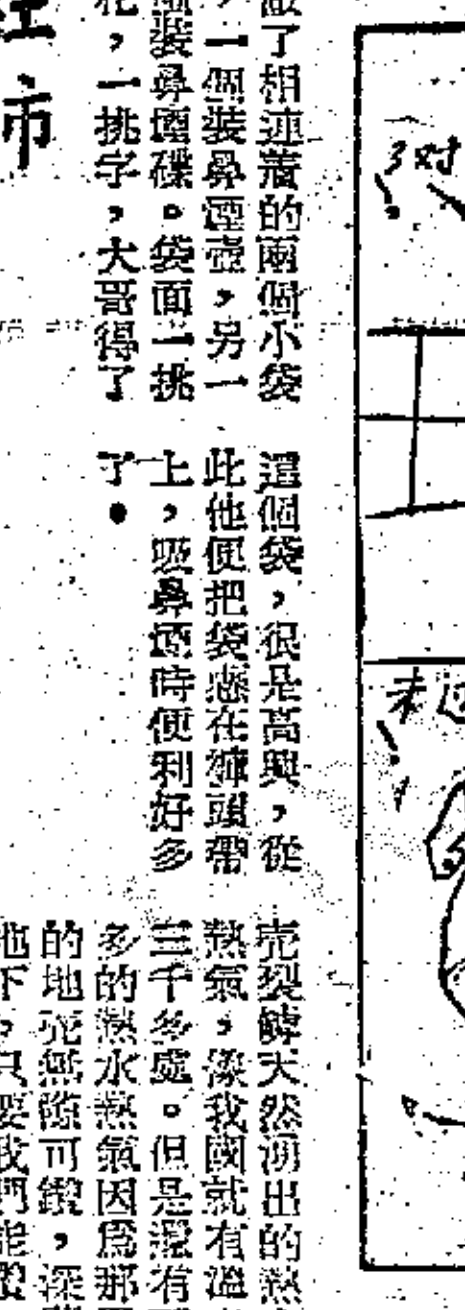 了對
未
了相連着的兩個小袋
，一個裝鼻煙壺，另一
裝鼻煙碟。袋面一挑
花，一挑字，大哥得了
這個袋，很是高興，從
此他便把袋戀在褲頭帶
上，吸鼻煙時便利好多
了。
市
売裂縫天然湧出的熱
熱氣，像我國就有溫
三千多處。但是還有
多的熱水熱氣因爲那
的地売無隙可鑽，深
地下，只要我們能